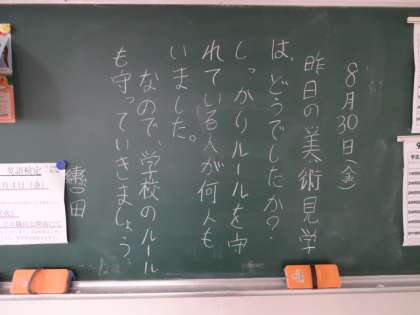 8月30日(金)
昨日の美術見学
は、どうでしたか?
しっかりルールを守
れている人が何人も
いました。
なので、学校のルール
も守っていきましょう。
英語検定